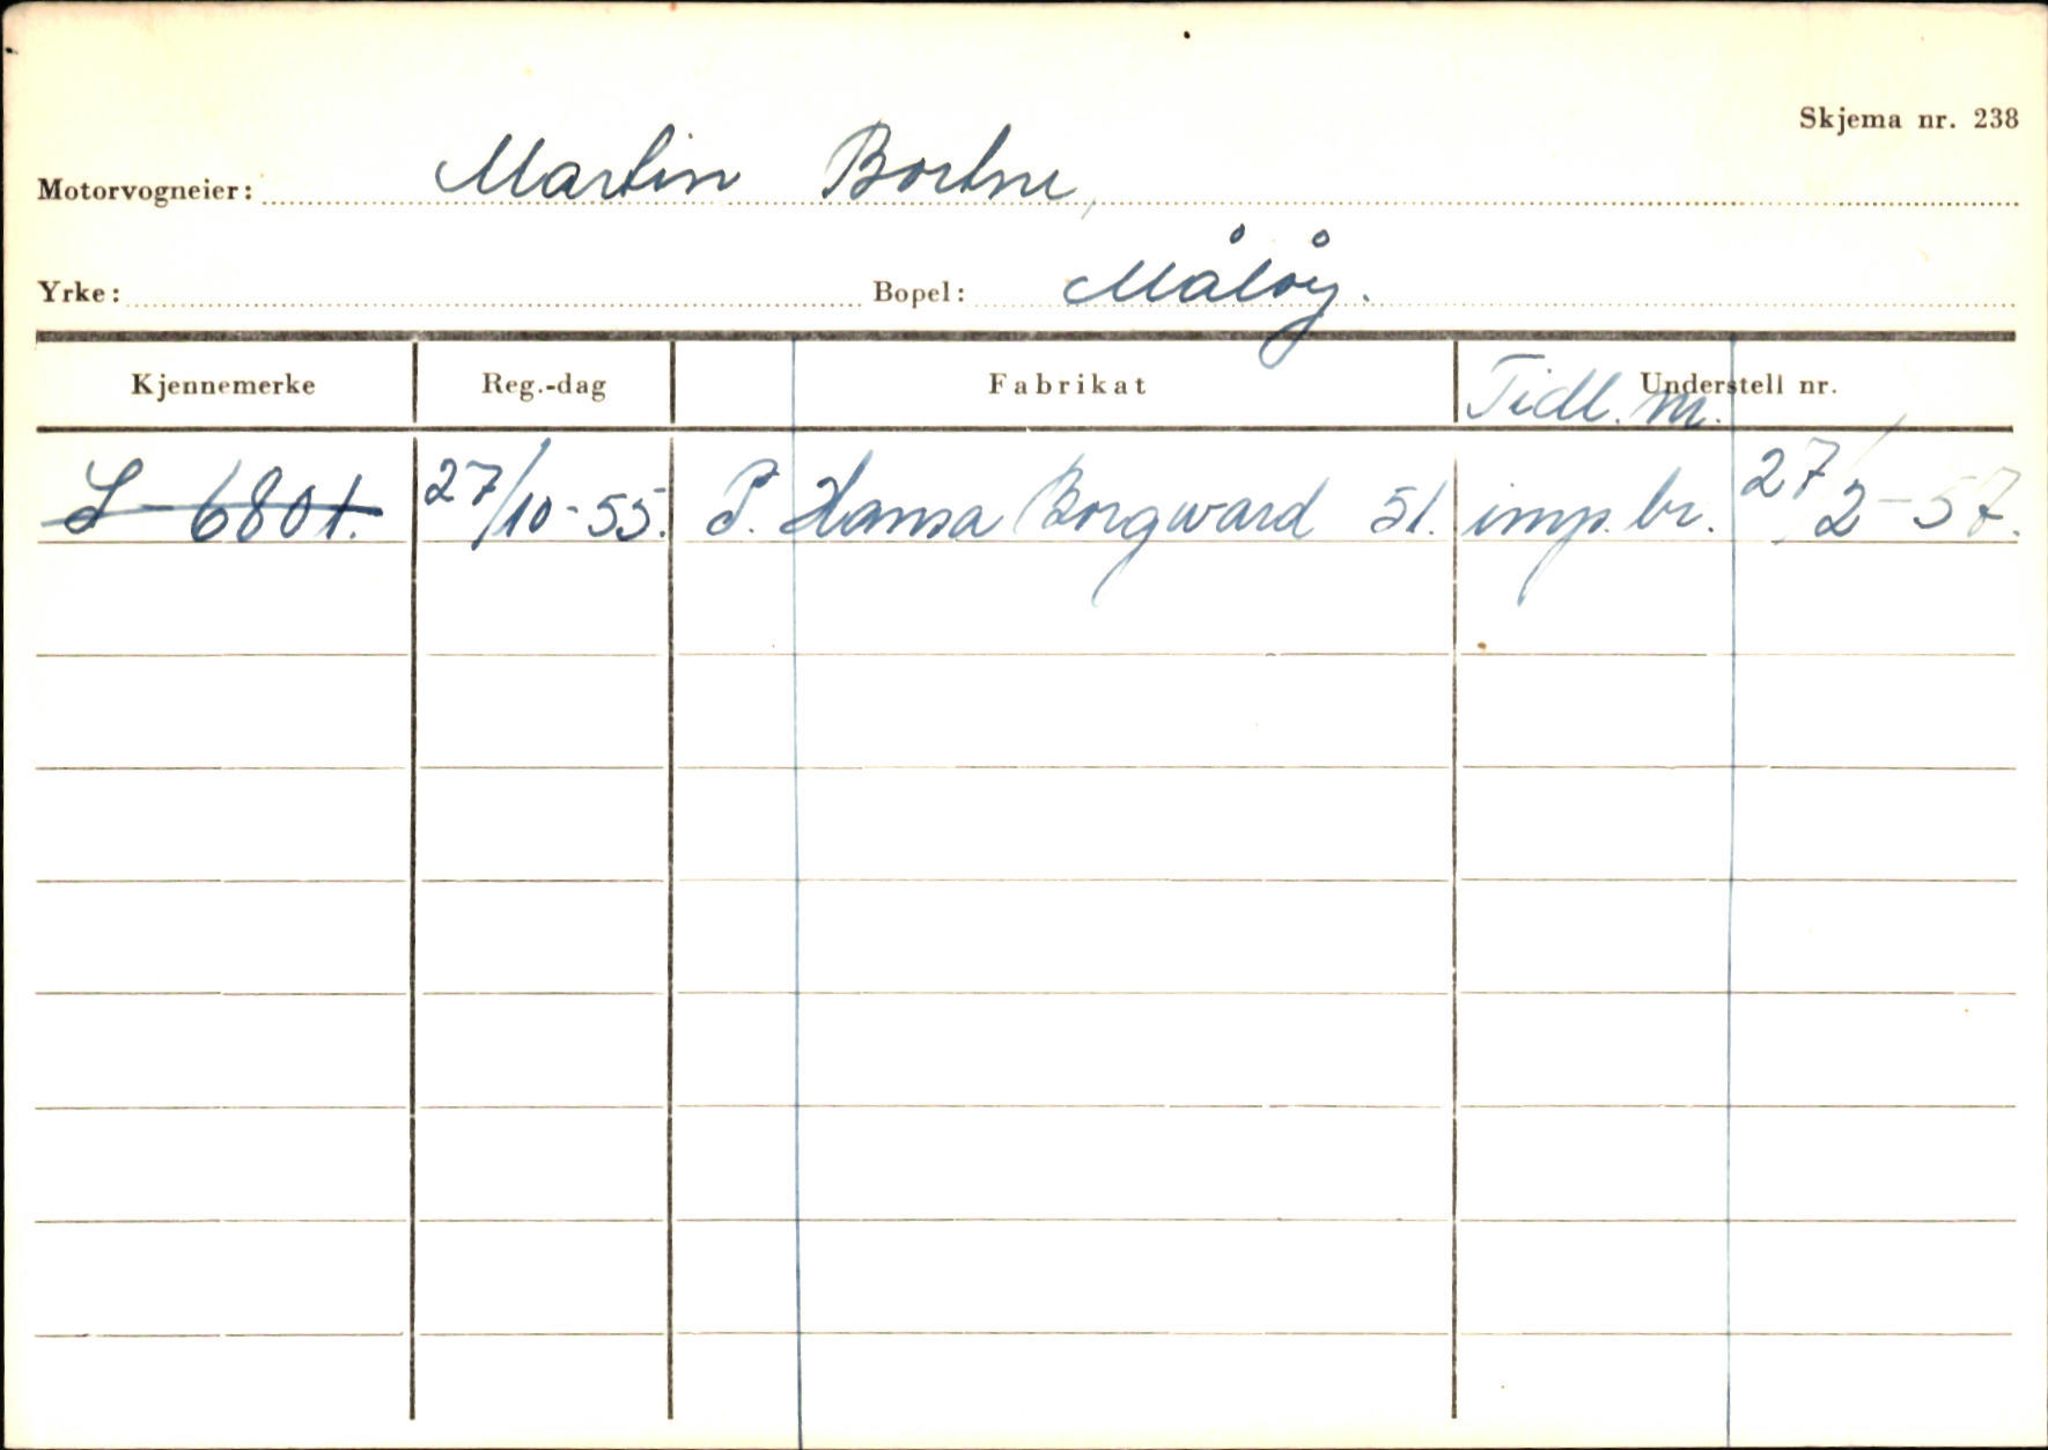 Skjema nr. 238
Motorvogneier: Martin Bortne,
Yrke: Bopel: Måløy.
Kjennemerke Reg.-dag Fabrikat Understell nr. Tidl. m.
S-6801. 27/10-55. P. Hansa Borgward 51. imp. br. 27/2-57.